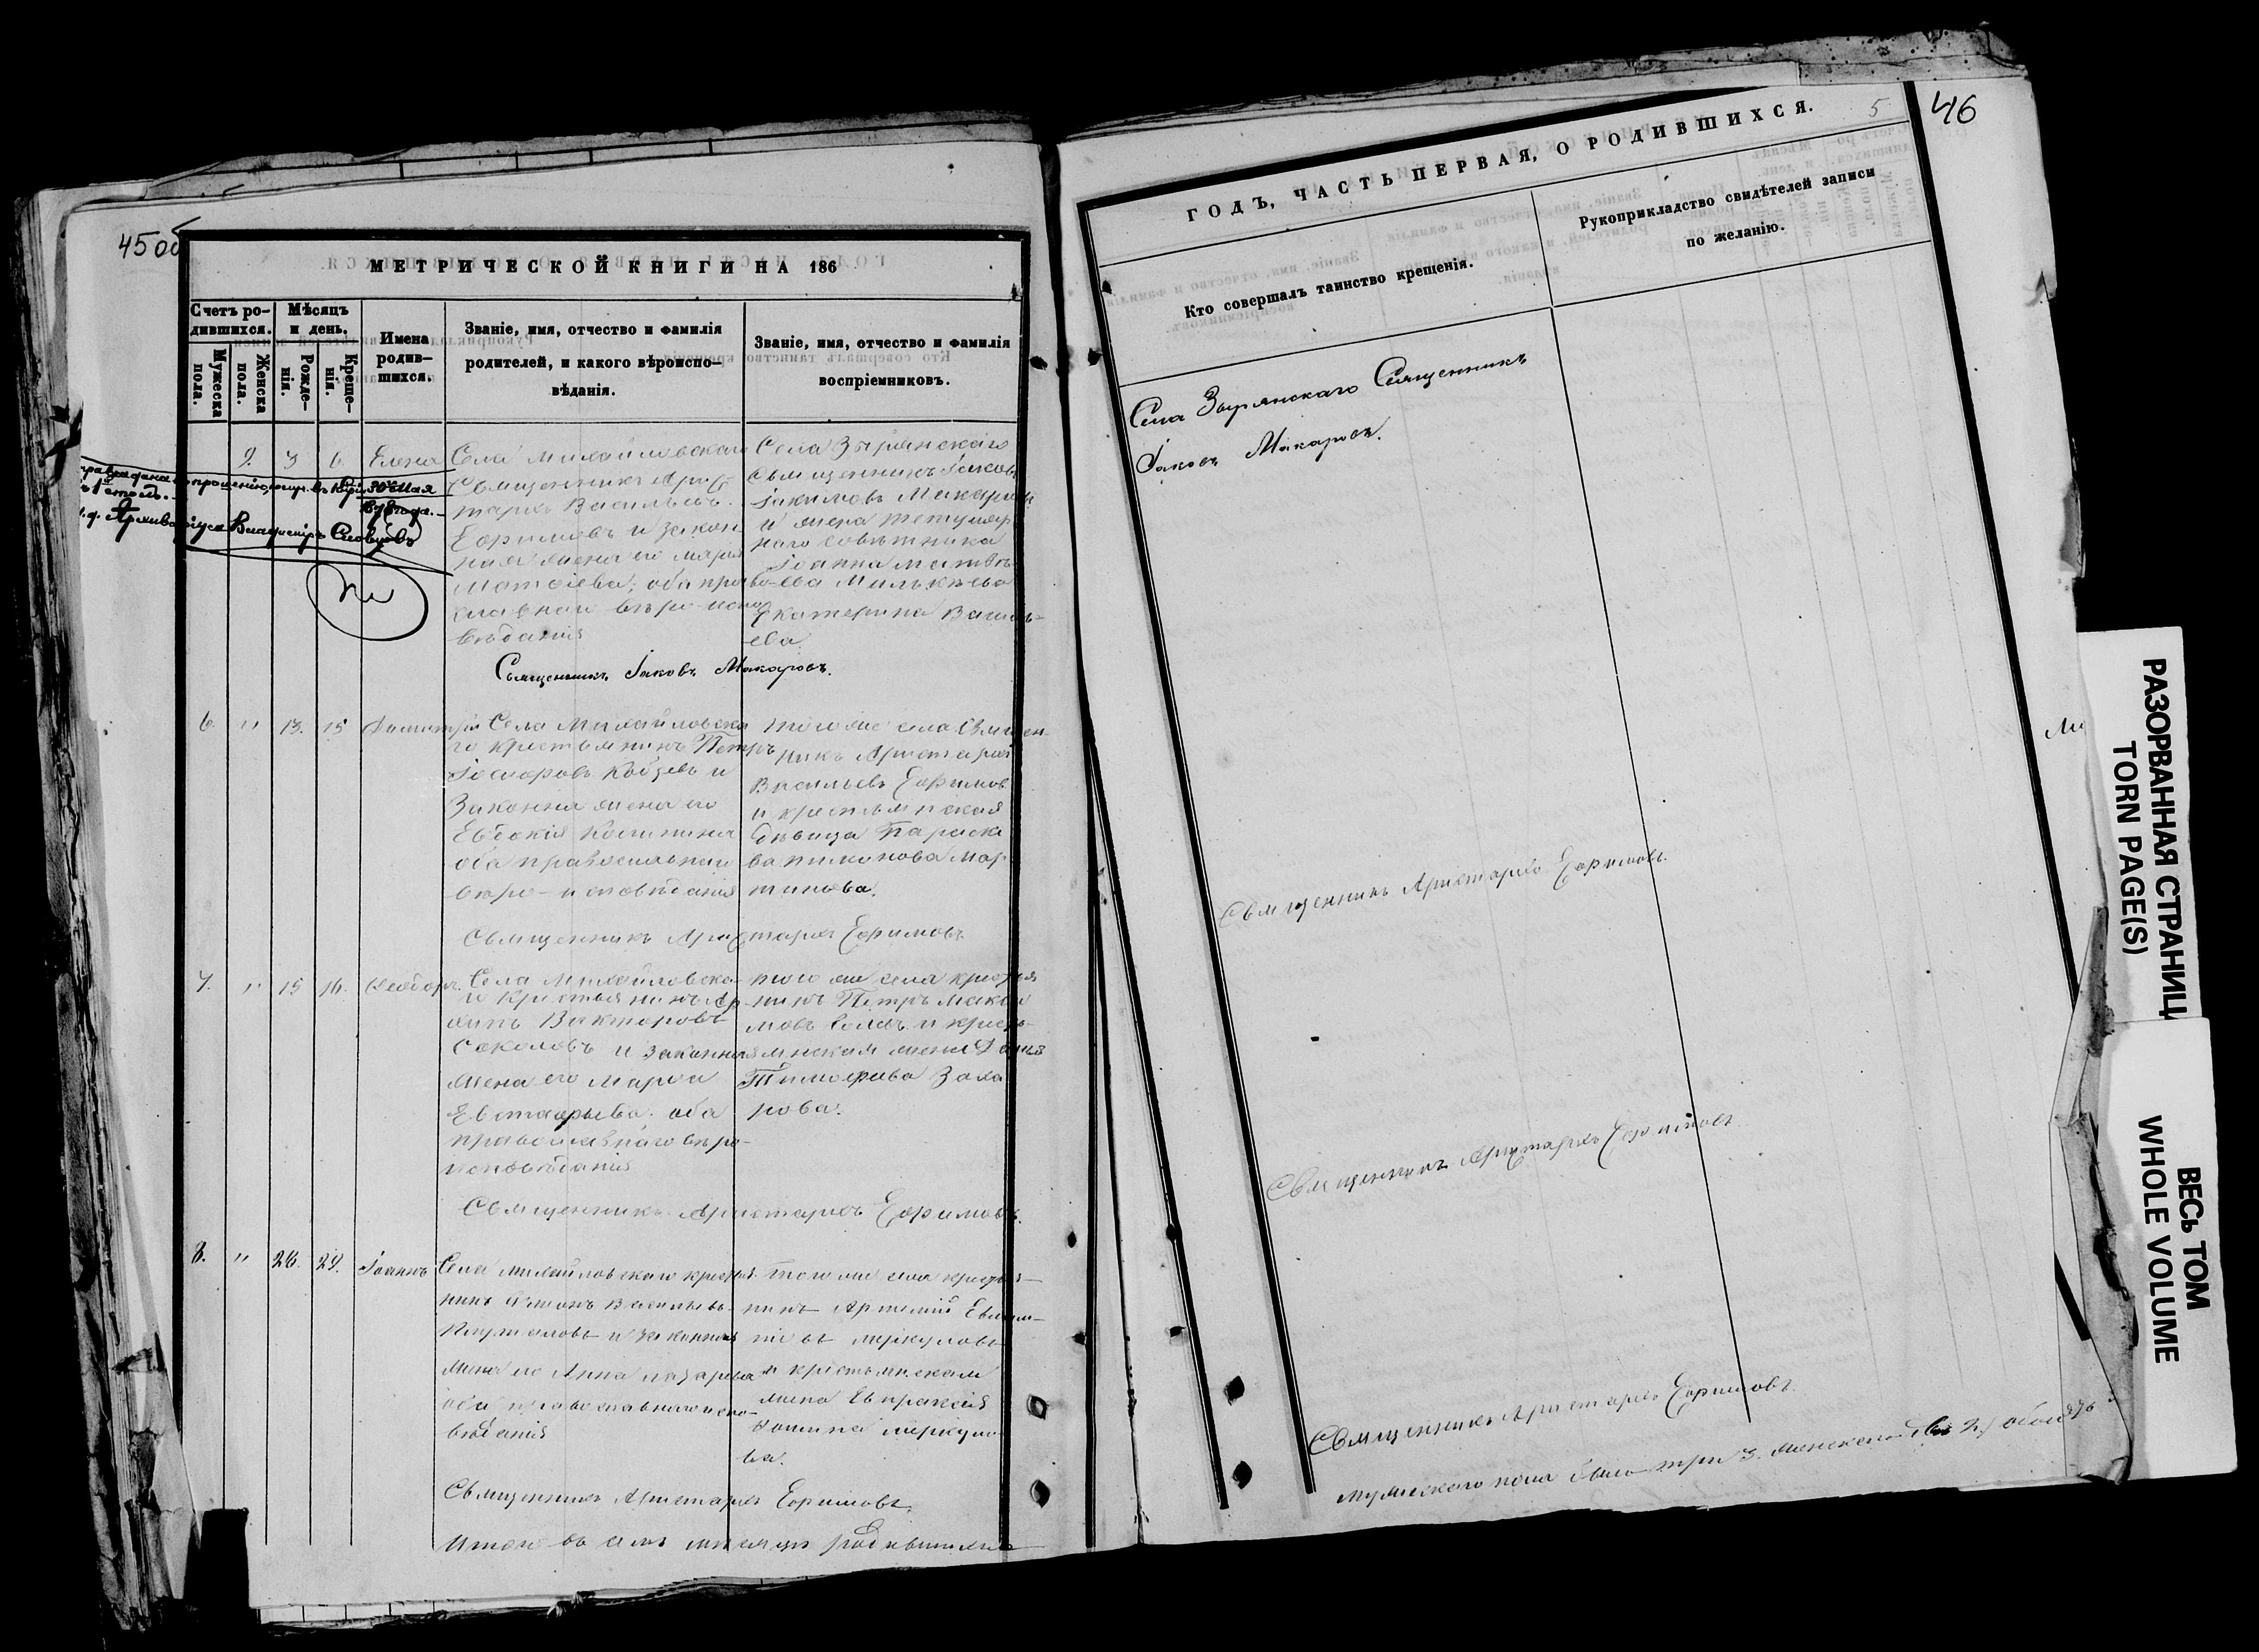 45 об
МЕТРИЧЕСКОЙ КНИГИ НА 186
Счетъ ро-
дившихся.
Мужеска
пола.
Женска
пола.
Мѣсяцъ
и день.
Рожде-
нія.
Креще-
нія.
Имена
родив-
шихся.
Званіе, имя, отчество и фамилія
родителей, и какого вѣроиспо-
вѣданія.
Званіе, имя, отчество и фамилія
воспріемниковъ.
9. 3 6. Елена
Села Михайловскаго
Священникъ Арис
тархъ Васильевъ
Ефимовъ и закон
ная жена его Марія
Матѳіева; оба право
славнаго вѣро-испо
вѣданія
Села Зырянскаго
Священникъ Іаковъ
Іакимовъ Макаровъ
и жена титуляр
наго совѣтника
Іоанна Матвѣ-
ева Милькѣева
Екатерина Василь-
ева.
30 Мая
Владиміръ Словцовъ
Священникъ Іаковъ Макаровъ.
6. " 13. 15 Димитрій
Села Михайловска
го крестьянинъ Петръ
Кобзевъ и
Законна жена его
Евдокія
оба православнаго
вѣро-исповѣданія
того же села Священ-
никъ Аристархъ
Васильевъ Ефимовъ
и крестьянская
дѣвица Параске
ва Мар
тинова.
Священникъ Аристархъ Ефимовъ
7. " 15 16. Ѳеодоръ.
Села Михайловска-
го крестьянинъ Ар-
хипъ Викторовъ
Соколовъ и законная
жена его Марѳа
Евстафьева. оба
православнаго вѣро-
исповѣданія
того же села крестья
нинъ Петръ
и кресть-
янская жена Дарья
Тимофеева Заха
рова.
Священникъ Аристархъ Ефимовъ.
8. " 26. 29. Іоаннъ
Села Михайловскаго крестья-
нинъ Васильевъ
и законная
жена его Анна Лазарева
оба православнаго испо-
вѣданія
того же села крестья-
нинъ Артемій Евламп-
іевъ Меркуловъ
и крестьянская
жена Евпраксія
Фомина Меркуло-
ва.
Священникъ Аристархъ Ефимовъ.
Итого въ семъ мѣсяцѣ родившихся
ГОДЪ, ЧАСТЬ ПЕРВАЯ, О РОДИВШИХСЯ.
5
46
Кто совершалъ таинство крещенія.
Рукоприкладство свидѣтелей записи
по желанію.
Села Зырянскаго Священникъ
Іаковъ Макаровъ.
Священникъ Аристархъ Ефимовъ.
Священникъ Аристархъ Ефимовъ
Священникъ Аристархъ Ефимовъ.
Мужескаго пола было три 3. женскаго два 2.
РАЗОРВАННАЯ СТРАНИЦ
TORN PAGE(S)
ВЕСЬ ТОМ
WHOLE VOLUME